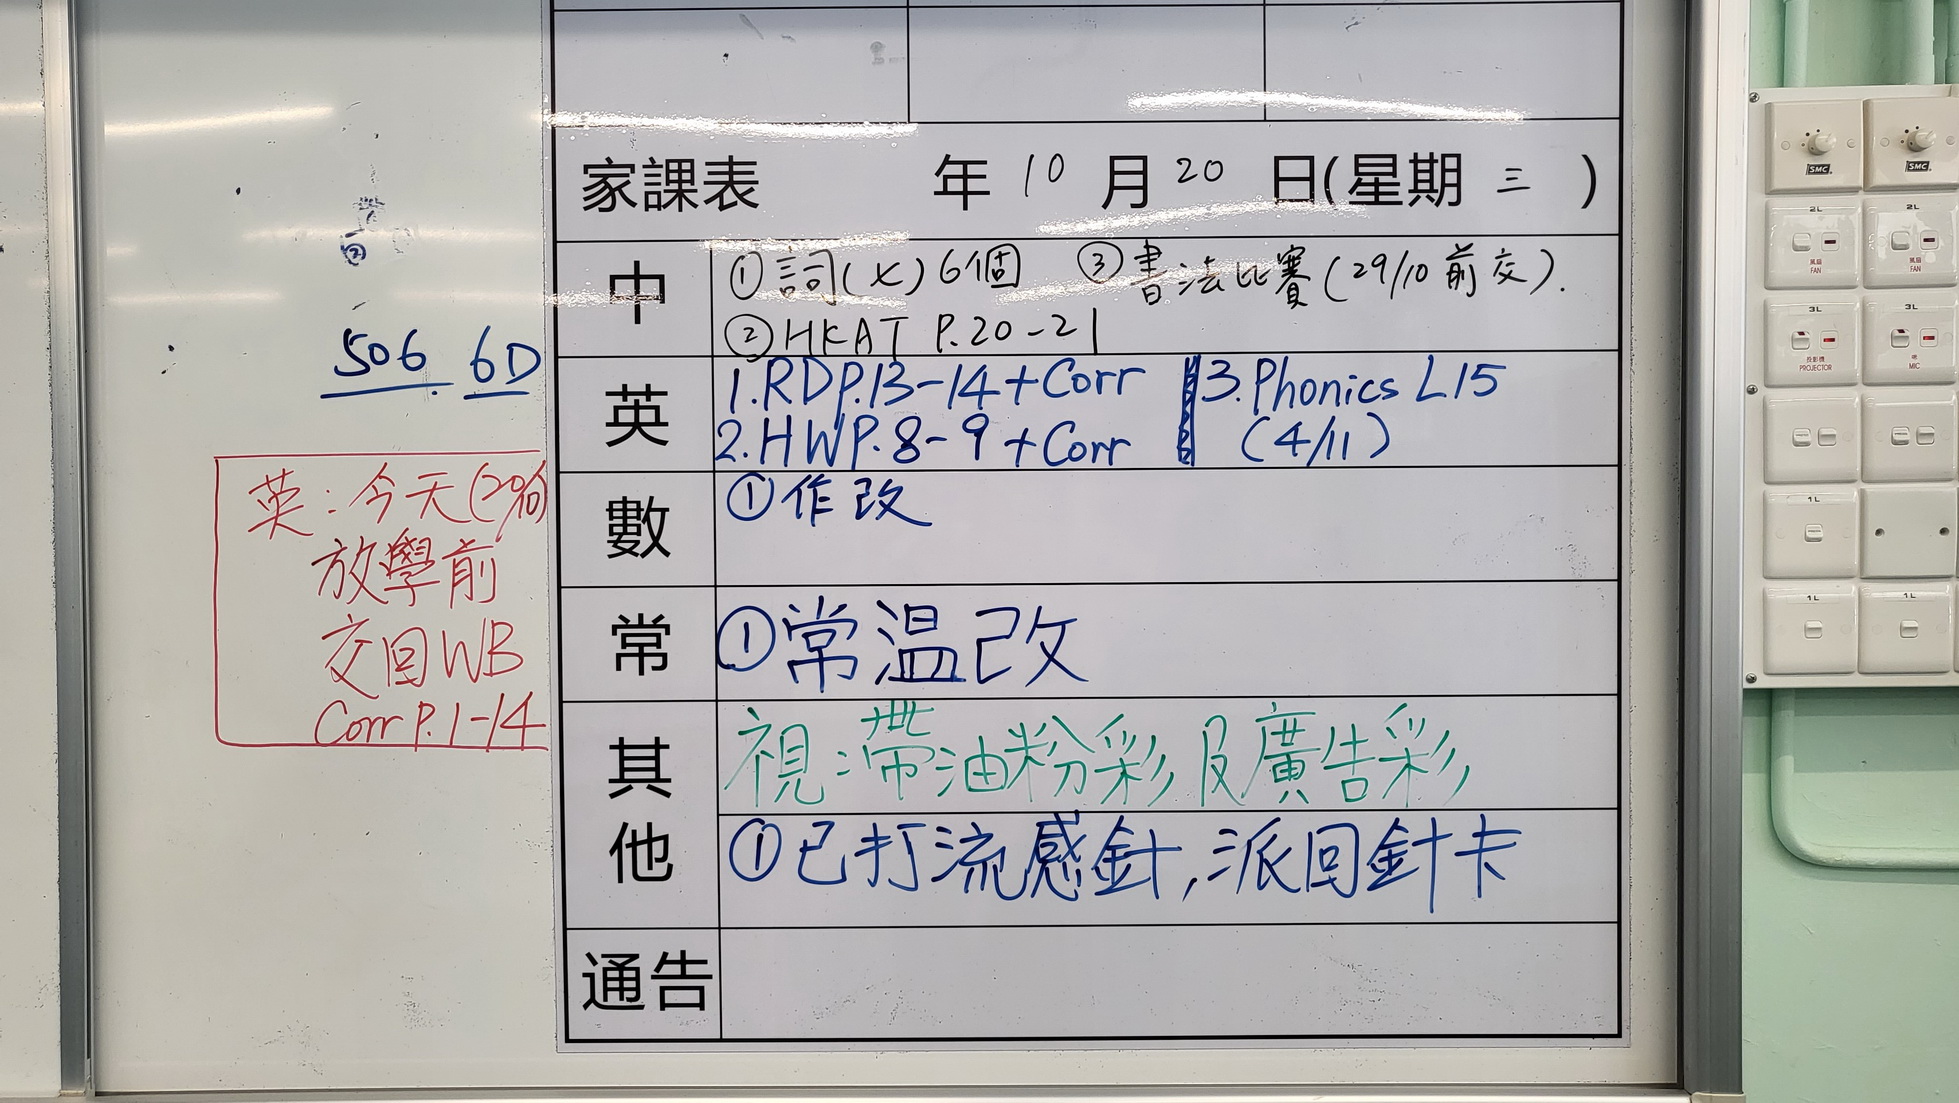 家課表 年 10 月 20 日(星期 三 )
中
① 詞(乂) 6個 ③ 書法比賽 (29/10 前交).
② HKAT P.20-21
英
1. RD P.13-14 + Corr
2. HW P.8-9 + Corr
3. Phonics L15
(4/11)
數
① 作改
常
① 常温改
其他
視:帶油粉彩及廣告彩
① 已打流感針,派回針卡
通告
506 6D
英:今天(20/10)
放學前
交回WB
Corr P.1-14
②
SMC
SMC
2L
風扇
FAN
2L
風扇
FAN
3L
投影機
PROJECTOR
3L
咪
MIC
1L
1L
1L